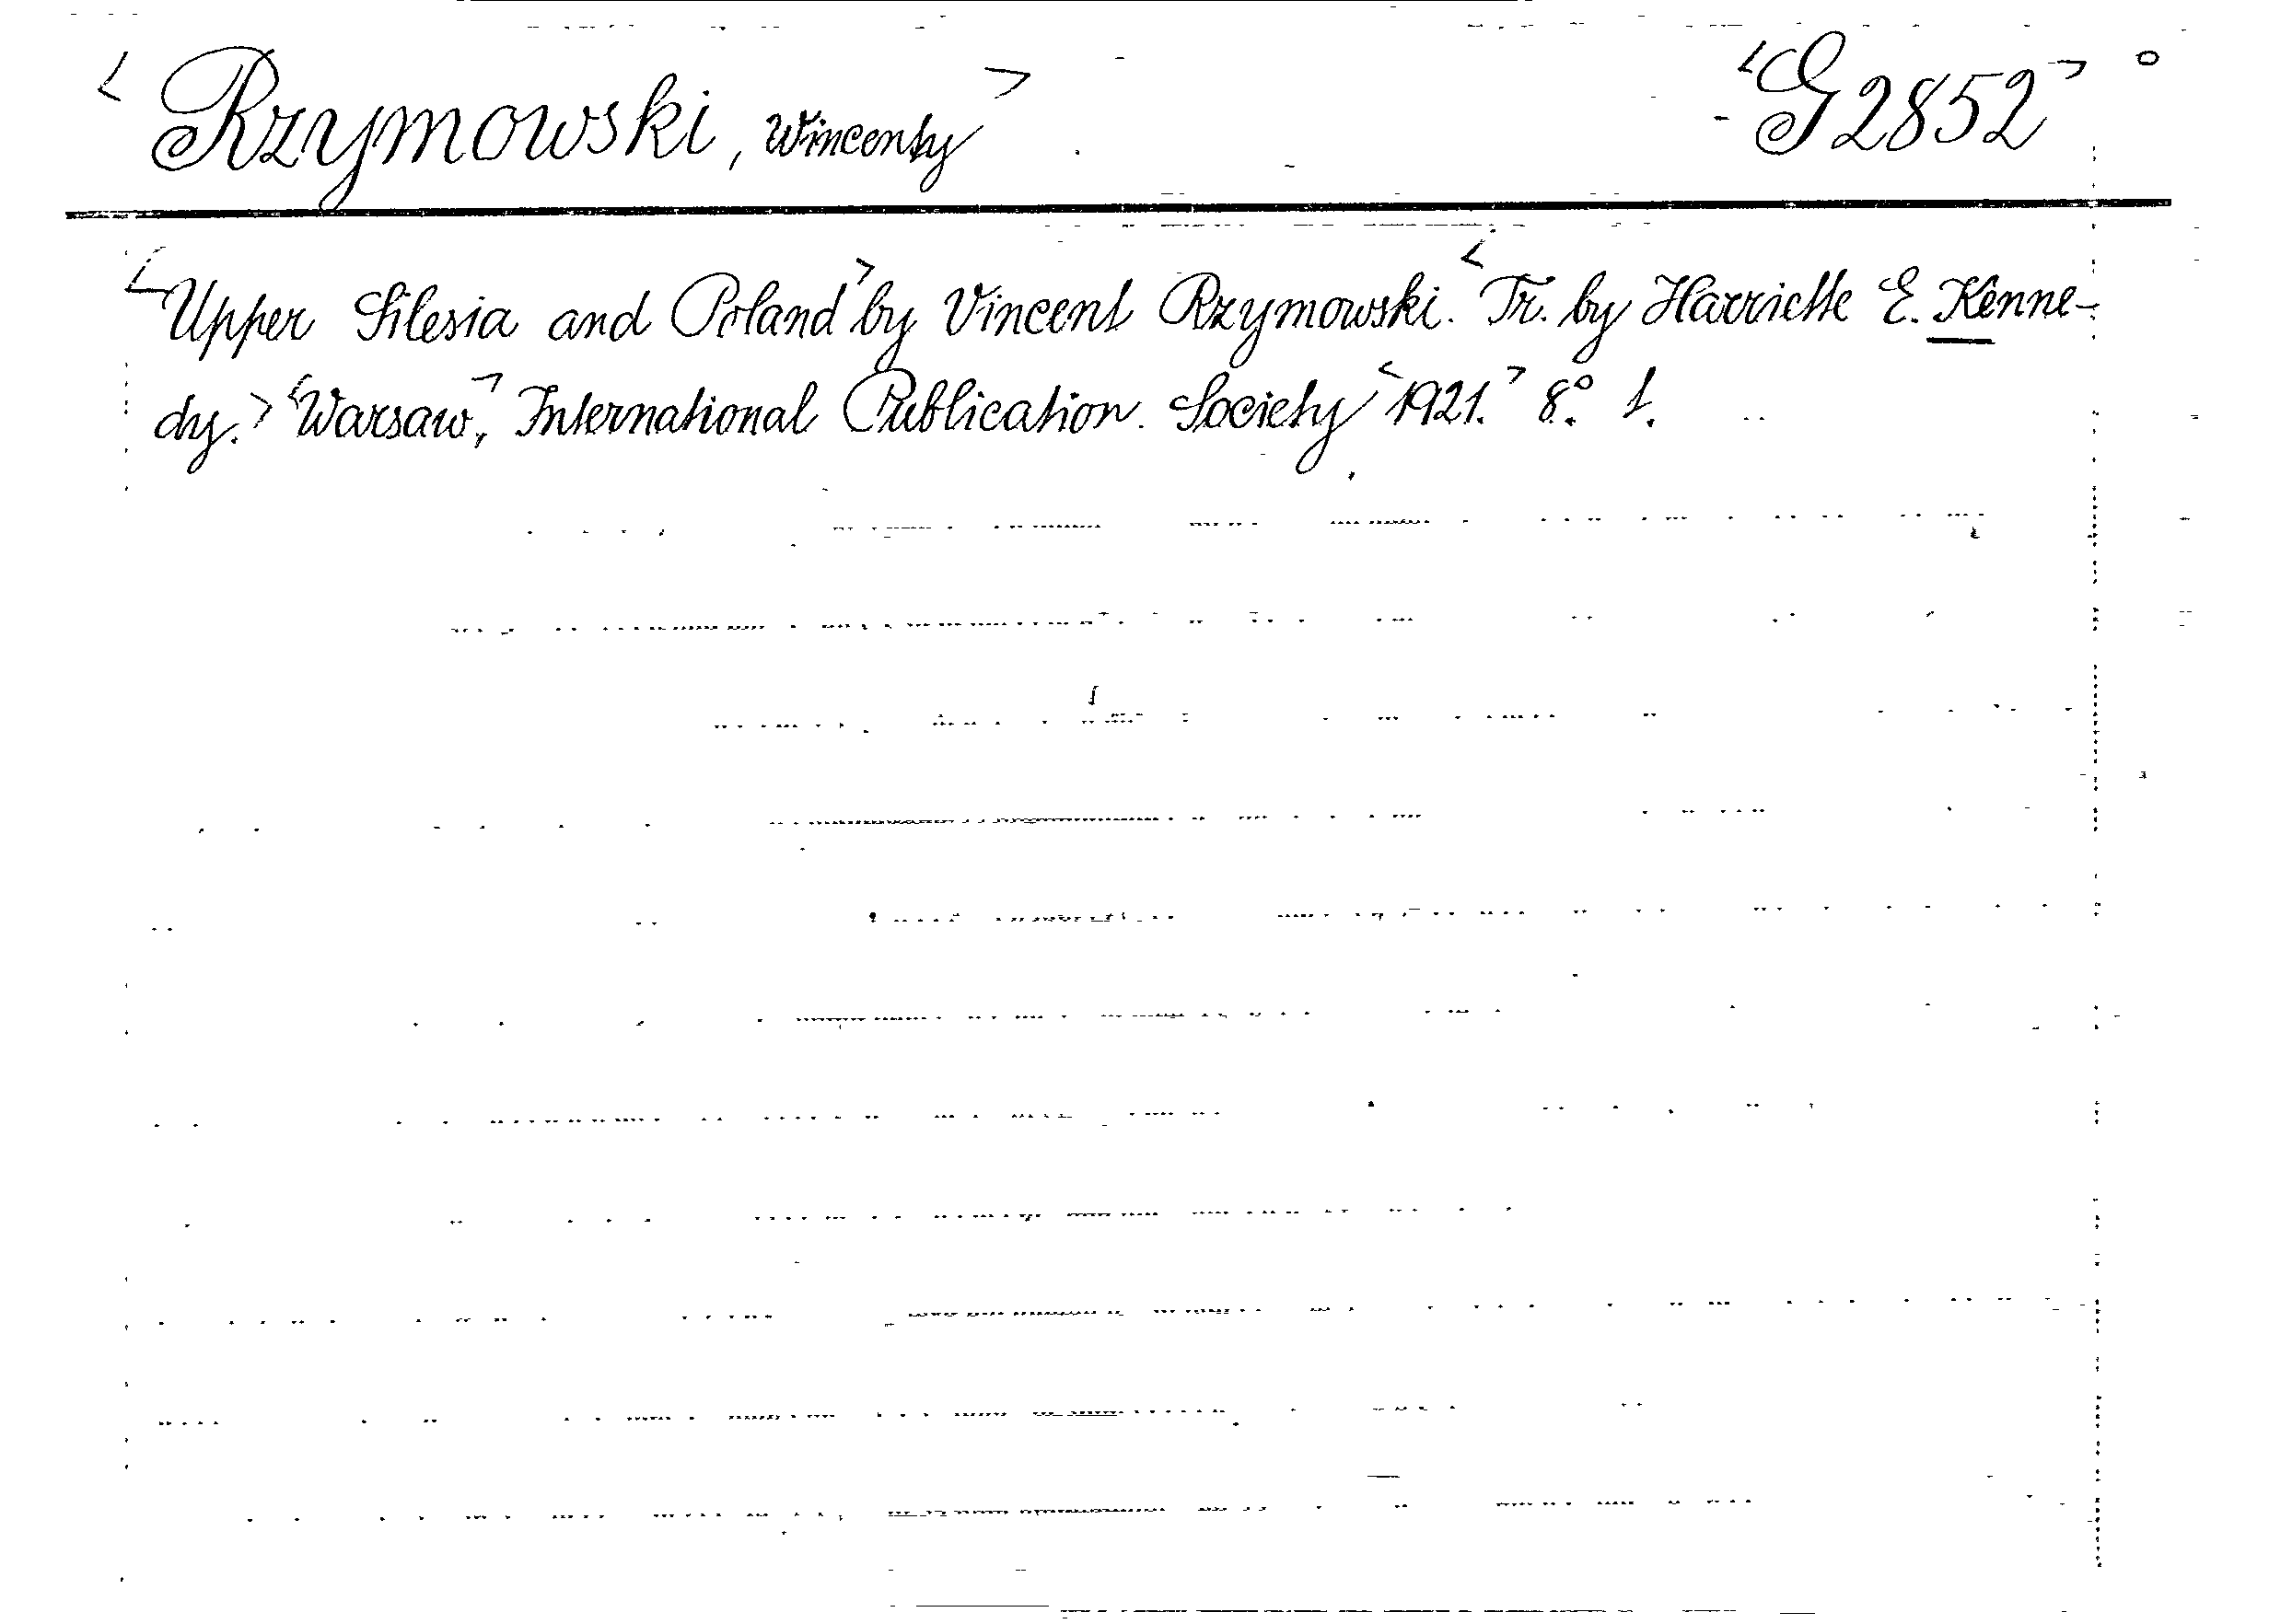 <Rzymowski, Wincenty> <G 2852> °
<Upper Silesia and Poland> by Vincent Rzymowski. <Tr. by Harriette E. Kenne-
dy.> <Warsaw>, International Publication Society <1921.> 8°. 1.